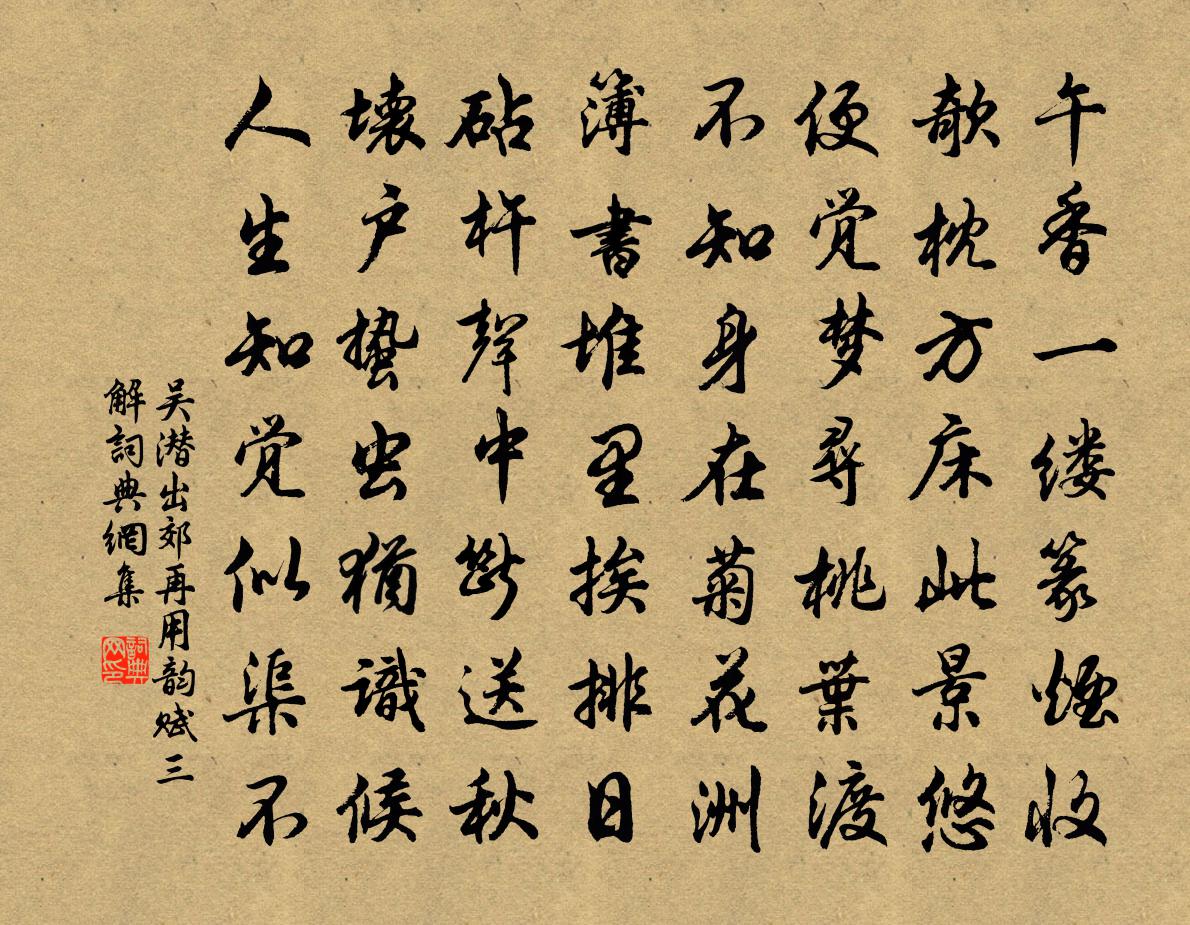 午香一缕篆烟收
欹枕方床此景悠
便觉梦寻桃葉渡
不知身在菊花洲
簿書堆里挨排日
砧杵聲中断送秋
壊户蛰虫猶識候
人生知觉似渠不
吴潜出郊再用韵赋三
解詞典網集
詞典网印